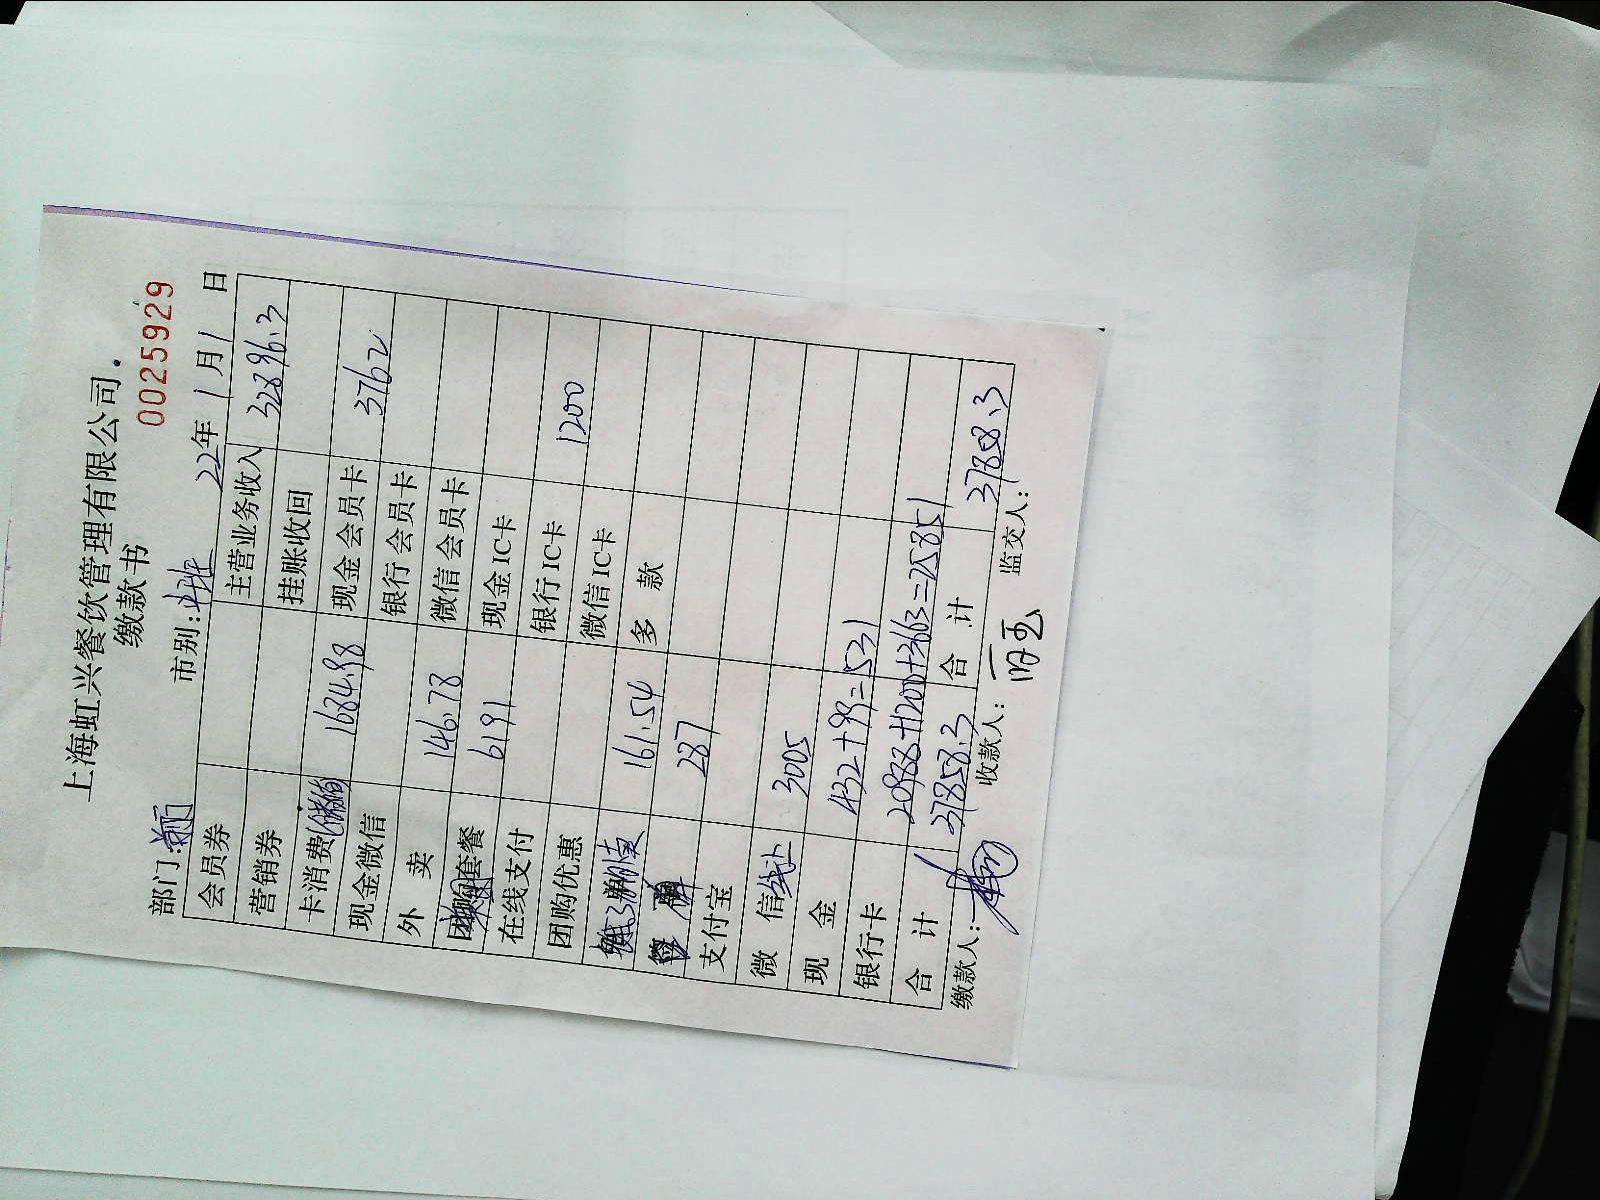 上海虹兴餐饮管理有限公司
缴款书 0025929
部门: 市别: 22年 1月 1日
会员券 主营业务收入 32896.3
营销券 挂账收回
卡消费(储值) 1684.98 现金会员卡 3762
现金微信 银行会员卡
外 卖 146.78 微信会员卡
套餐 6191 现金IC卡
在线支付 银行IC卡 1200
团购优惠 微信IC卡
161.54 多 款
287
支付宝
微 信线上 3005
现 金 432+99=531
银行卡 20988+1200+3663=25851
合 计 37858.3 合 计 37858.3
缴款人: 收款人: 监交人: